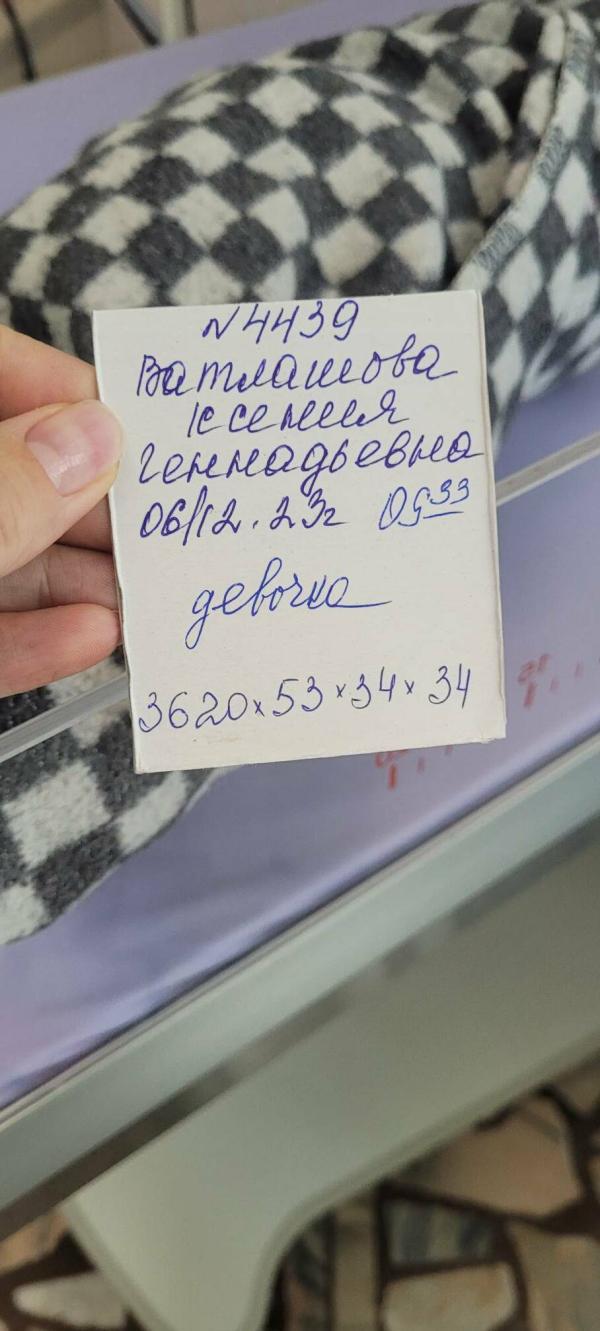 N4439
Ватлашова
Ксения
Геннадьевна
06/12.23г 09³³
девочка
3620×53×34×34